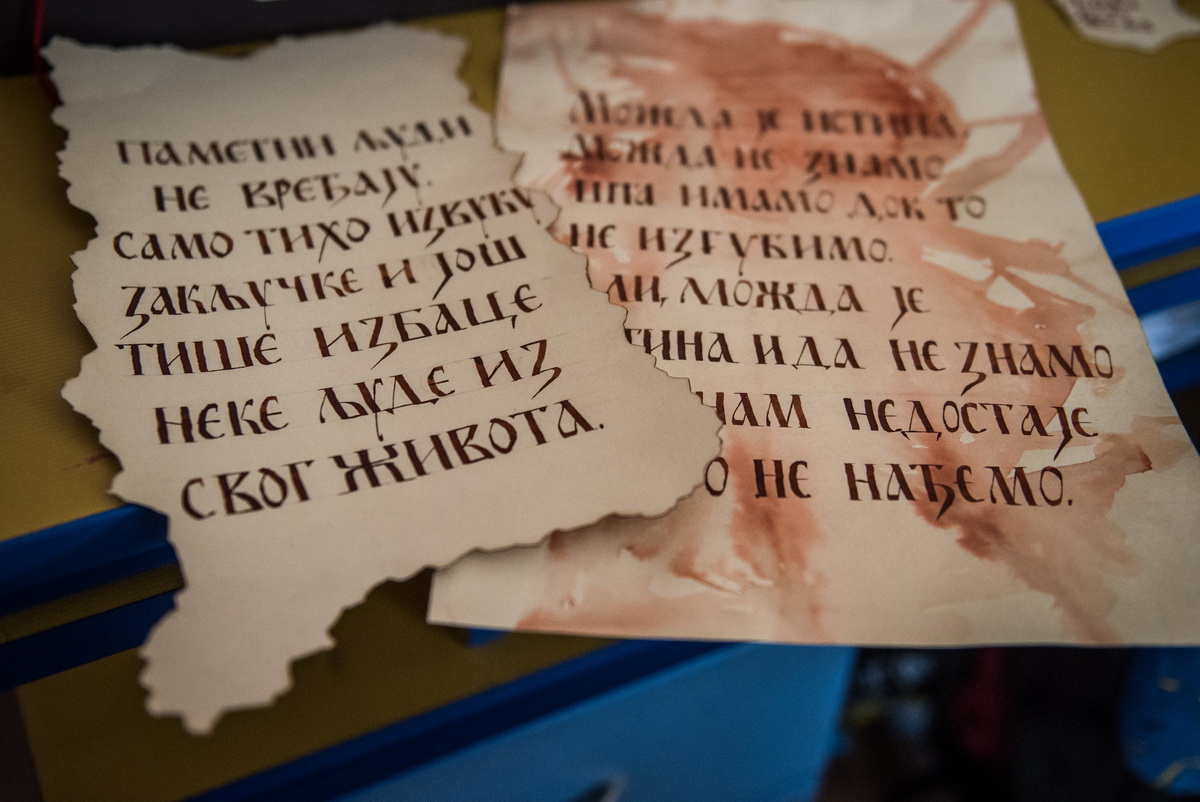 ПАМЕТНИ ЉУДИ
НЕ ВРЕЂАЈУ.
САМО ТИХО ИЗВУКУ
ЗАКЉУЧКЕ И ЈОШ
ТИШЕ ИЗБАЦЕ
НЕКЕ ЉУДЕ ИЗ
СВОГ ЖИВОТА.
МОЖДА ЈЕ ИСТИНА,
МОЖДА НЕ ЗНАМО
ШТА ИМАМО ДОК ТО
НЕ ИЗГУБИМО.
ЛИ, МОЖДА ЈЕ
ТИНА И ДА НЕ ЗНАМО
НАМ НЕДОСТАЈЕ
О НЕ НАЂЕМО.